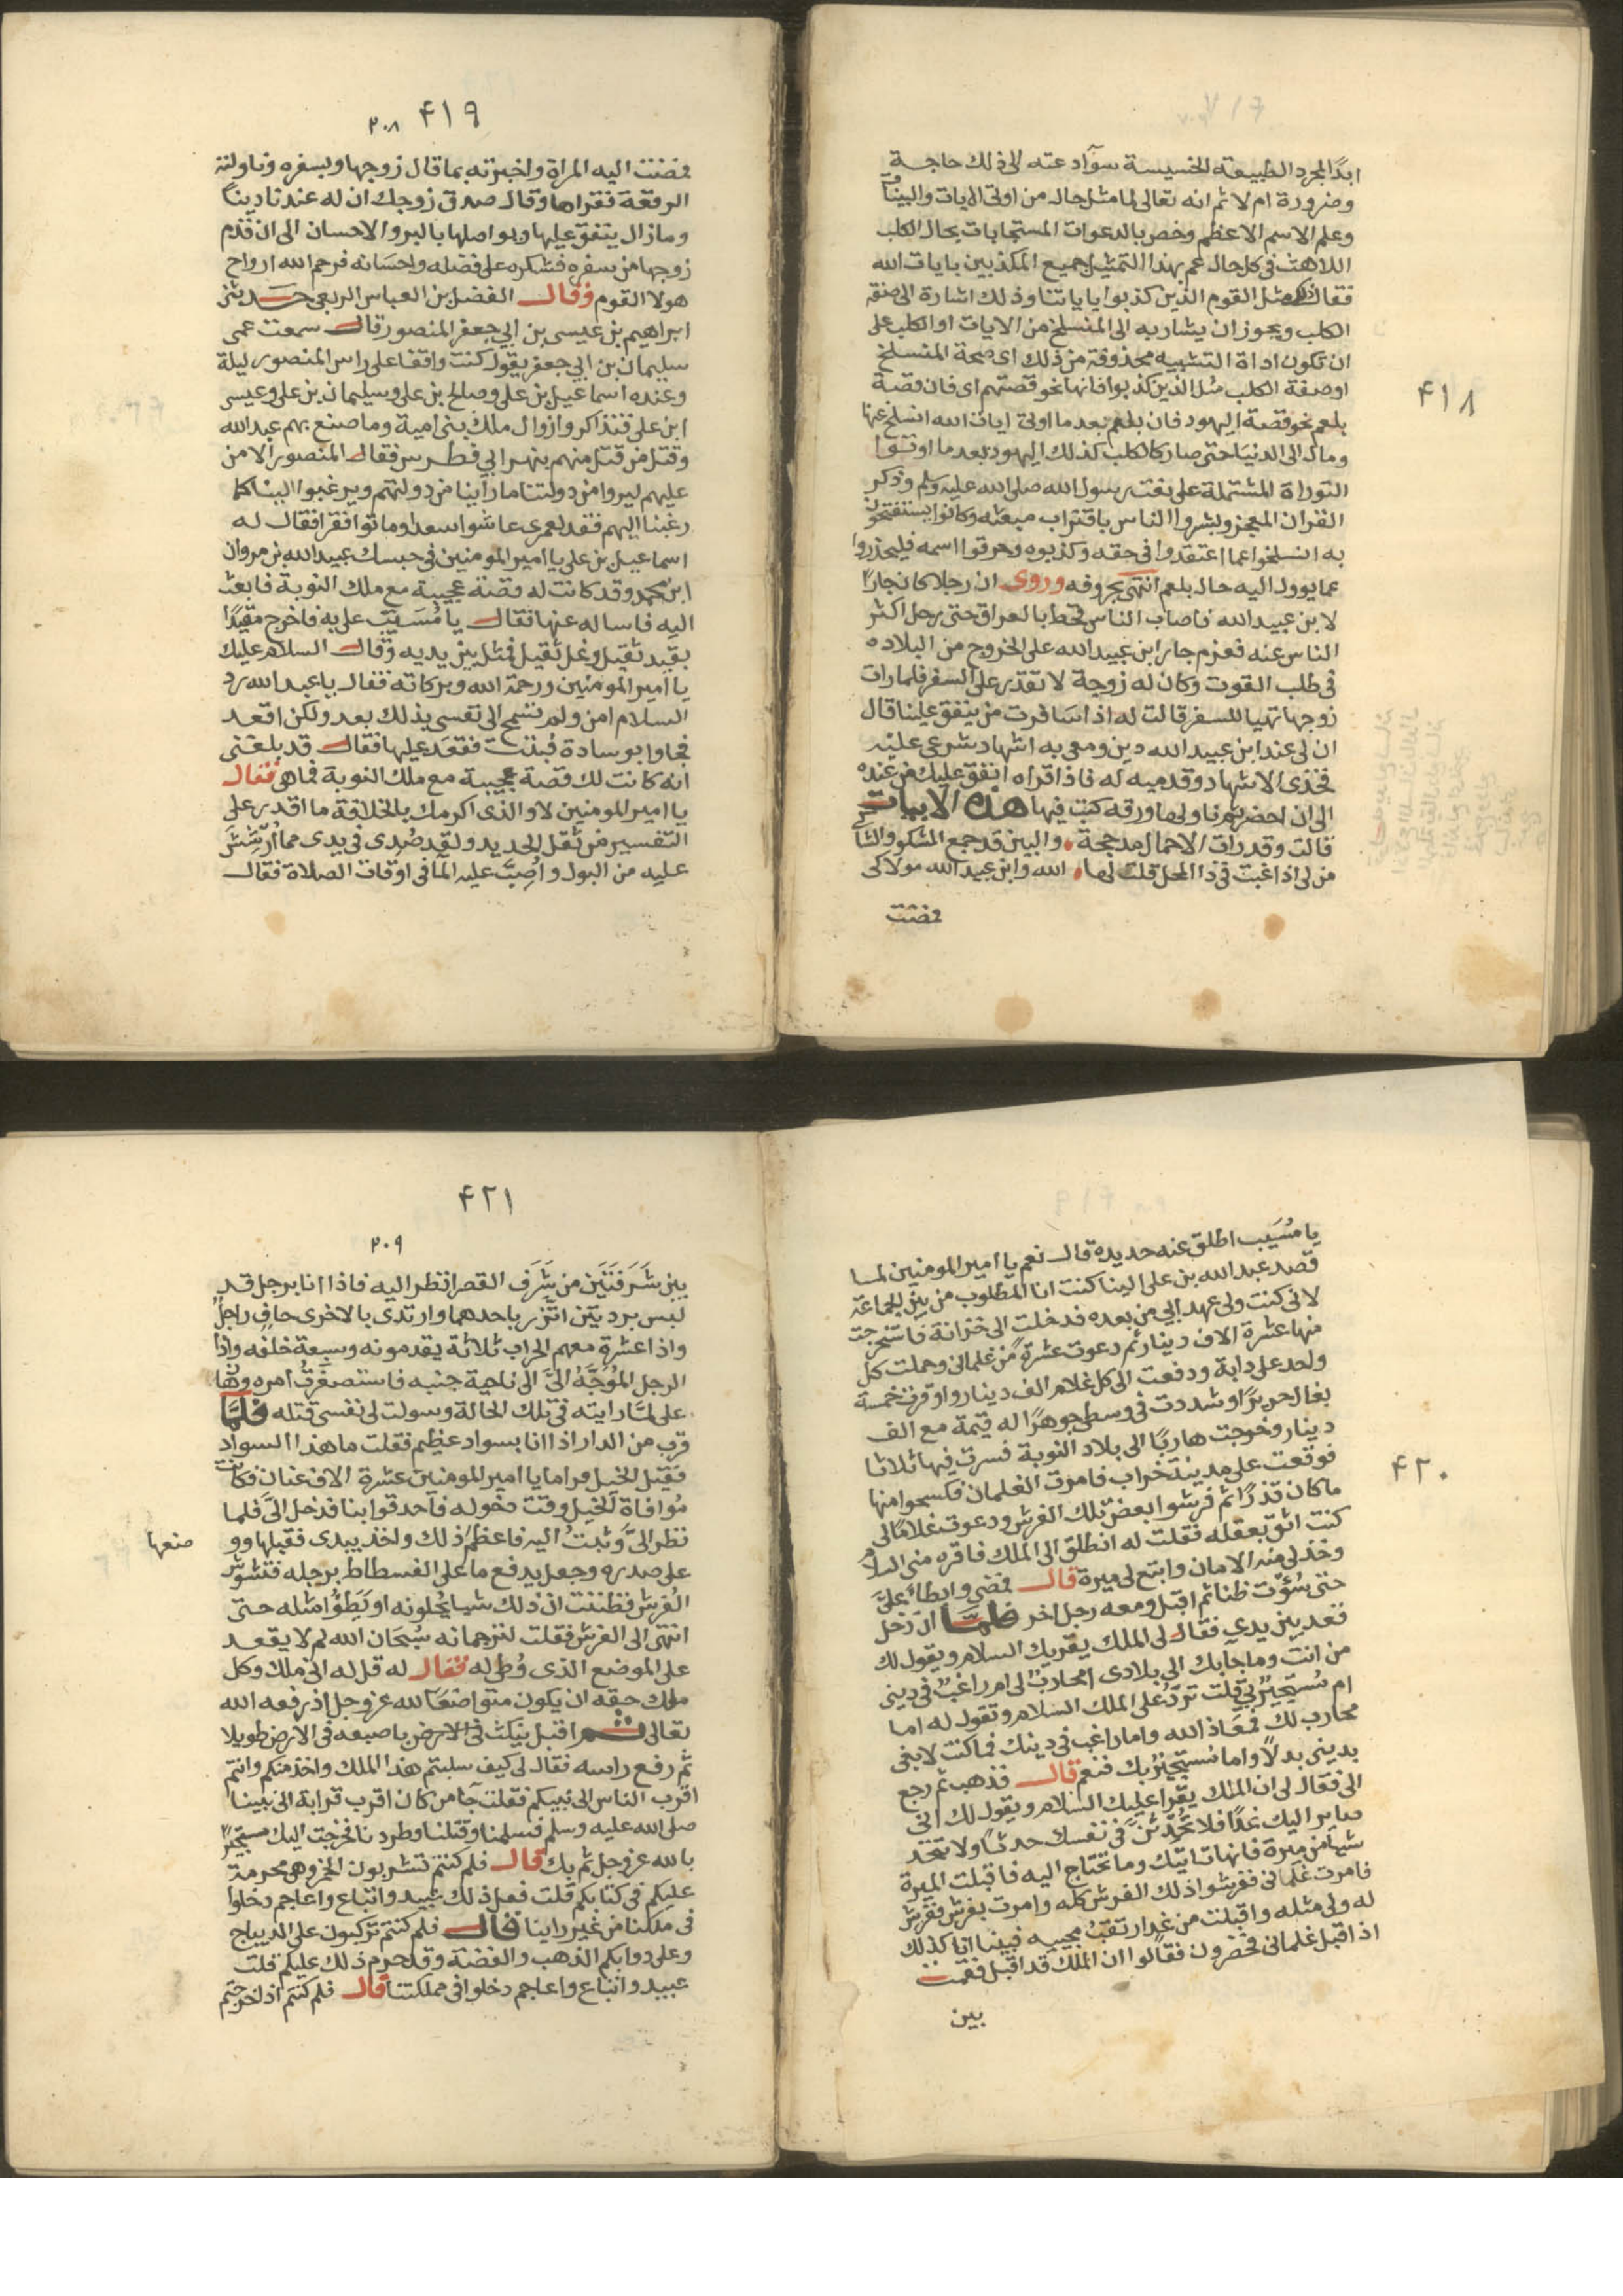 ٤١٨
ابدًا لمجرد الطبيعة الخسيسة سوآد عته الى ذلك حاجة
وضرورة ام لا ثم انه تعالى لما مثل حال من اوتى الايات والبينات
وعلم الاسم الاعظم وخص بالدعوات المستجابات بحال الكلب
اللاهث فى كل حال عم بهذا التمثيل جميع المكذبين بايات الله
فقال ذلك مثل القوم الذين كذبوا باياتنا وذلك اشارة الى صفة
الكلب ويجوز ان يشار به الى المنسلخ من الايات او الكلب على
ان تكون اداة التشبيه محذوفة من ذلك اى صحة المنسلخ
او صفة الكلب مثل الذين كذبوا فانها نحو قصتهم اى فان قصة
بلعم نحو قصة اليهود فان بلعم بعد ما اوتى ايات الله انسلخ عنها
ومال الى الدنيا حتى صار كالكلب كذلك اليهود بعد ما اوتوا
التوراة المشتملة على نعت رسول الله صلى الله عليه وسلم وذكر
القران المعجز وبشروا الناس باقتراب مبعثه وكانوا يستفتحون
به انسلخوا عما اعتقدوا فى حقه وكذبوه وحرفوا اسمه فليحذروا
عما يوول اليه حال بلعم انتهى بحروفه وروى ان رجلا كان جارًا
لابن عبيد الله فاصاب الناس قحط بالعراق حتى رحل اكثر
الناس عنه فعزم جار ابن عبيد الله على الخروج من البلاده
فى طلب القوت وكان له زوجة لا تقدر على السفر فلما رات
زوجها تهيا للسفر قالت له اذا سافرت من ينفق علينا قال
ان لى عند ابن عبيد الله دين ومعى به اشهاد شرعى عليه
فخذى الاشهاد وقدميه له فاذا قراه انفق عليك من عنده
الى ان احضر ثم ناولها ورقه كتب فيها هذه الابيات
قالت وقد رات الاحمال مدججة ، والبين قد جمع المشكو والشاكى
من لى اذا غبت فى ذا المحل قلت لها ، الله وابن عبيد الله مولاكى
فمضت
٤١٩
٢٠٨
فمضت اليه المراة واخبرته بما قال زوجها وبسفره وناولته
الرقعة فقراها وقال صدق زوجك ان له عندنا دينًا
وما زال ينفق عليها ويواصلها بالبر والاحسان الى ان قدم
زوجها من سفره فشكره على فضله واحسانه فرحم الله ارواح
هولا القوم وقال الفضل بن العباس الربعى حدثنى
ابراهيم بن عيسى بن ابى جعفر المنصور قال سمعت عمى
سليمان بن ابى جعفر يقول كنت واقفا على راس المنصور ليلة
وعنده اسماعيل بن على وصالح بن على وسليمان بن على وعيسى
ابن على فتذاكروا زوال ملك بنى امية وما صنع بهم عبد الله
وقتل من قتل منهم بنهر ابى فطرس فقال المنصور الا من
عليهم ليروا من دولتنا ما راينا من دولتهم ويرغبوا الينا كما
رغبنا اليهم فقد لعمرى عاشوا سعدا وماتوا فقرا فقال له
اسماعيل بن على يا امير المومنين فى حبسك عبيد الله بن مروان
ابن محمد وقد كانت له قصة عجيبة مع ملك النوبة فابعث
اليه فاساله عنها فقال يا مُسَيَّب على به فاخرج مقيدًا
بقيد ثقيل وغل ثقيل فمثل بين يديه وقال السلام عليك
يا امير المومنين ورحمة الله وبركاته فقال يا عبد الله رد
السلام امن ولم تسمح الى نفسى بذلك بعد ولكن اقعد
فجاوا بوسادة فبنت فقعد عليها فقال قد بلغنى
انه كانت لك قصة عجيبة مع ملك النوبة فما هى فقال
يا امير المومنين لا والذى اكرمك بالخلافة ما اقدر على
التفسير من ثقل الحديد ولقد صُدى فى يدى مما اُرشّشَ
عليه من البول واُصِبَّ عليه المآ فى اوقات الصلاة فقال
٤٢٠
يا مُسَيب اطلق عنه حديده قال نعم يا امير المومنين لما
قصد عبد الله بن على الينا كنت انا المطلوب من بين الجماعة
لانى كنت ولى عهد ابى من بعده فدخلت الى خزانة فاستخرجت
منها عشرة الاف دينار ثم دعوت عشرةً من غلمانى وحملت كل
واحد على دابة ودفعت الى كل غلام الف دينار واوقرت خمسة
بغال حريرًا وشددت فى وسطى جوهرًا له قيمة مع الف
دينار وخرجت هاربًا الى بلاد النوبة فسرت فيها ثلاثا
فوقعت على مدينة خراب فامرت الغلمان فكسحوا منها
ما كان قذرًا ثم فرشوا بعض تلك الفرش ودعوت غلامًا لى
كنت اثق بعقله فقلت له انطلق الى الملك فاقره منى السلام
وخذ لى منه الامان وابتع لى ميرة قال فمضى وابطاء على
حتى سُوّت ظنا ثم اقبل ومعه رجل اخر فلما ان دخل
قعد بين يدى فقال لى الملك يقريك السلام ويقول لك
من انت وما جآبك الى بلادى امحارب لى ام راغب فى دينى
ام مُستجيرٌ بى قلت تردّ على الملك السلام وتقول له اما
محارب لك فمعاذ الله واما راغب فى دينك فما كنت لابغى
بدينى بدلًا واما مُستجيرٌ بك فنعم قال فذهب ثم رجع
الى فقال لى ان الملك يقرا عليك السلام ويقول لك انى
صاير اليك غدًا فلا تُحدِثنّ فى نفسك حدثًا ولا تتخذ
شيا من ميرة فانها تاتيك وما تحتاج اليه فاقبلت الميرة
فامرت غلمانى ففرشوا ذلك الفرش كله وامرت بفرش ففرش
له ولى مثله واقبلت من غد ارتقب مجيه فبينا انا كذلك
اذ اقبل غلمانى يحضرون فقالوا ان الملك قد اقبل فقمت
بين
٤٢١
٢٠٩
بين شَرَفَتَين من شَرَف القصر انظر اليه فاذا انا برجل قد
لبس بردتين اتّزر باحدهما وارتدى بالاخرى حافٍ راجل
واذا عشرة معهم الحراب ثلاثة يقدمونه وسبعة خلفه واذا
الرجل المُوَجَّهُ الىّ الى ناحية جنبه فاستصغرتُ امره وهان
على لمّا رايته فى تلك الحالة وسولت لى نفسى قتله فلمّا
قرب من الدار اذا انا بسواد عظيم فقلت ما هذا السواد
فقيل الخيل فراما يا امير المومنين عشرة الاف عنان فكانت
مُوافاة الخيل وقت دخوله فاحدقوا بنا فدخل الىّ فلما
نظر الىّ وثبتُ اليه فاعظم ذلك واخذ بيدى فقبلها وو
ضعها
على صدره وجعل يدفع ما على الفسطاط برجله فتشوّش
الفرش فظننت ان ذلك شيا يُجلونه او يَطؤُا مثله حتى
انتهى الى الفرش فقلت لترجمانه سُبحان الله لم لا يقعد
على الموضع الذى وُطى له فقال له قل له انى ملك وكل
ملك حقه ان يكون متواضعًا لله عز وجل اذ رفعه الله
تعالى ثم اقبل ينكث فى الارض باصبعه فى الارض طويلا
ثم رفع راسه فقال لى كيف سلبتم هذا الملك واخذ منكم وانتم
اقرب الناس الى نبيكم فقلت جآ من كان اقرب قرابة الى نبينا
صلى الله عليه وسلم فسلمنا وقتلنا وطردنا فخرجت اليك مستجيرًا
بالله عز وجل ثم بك قال فلم كنتم تشربون الخمر وهى محرمة
عليكم فى كتابكم قلت فعل ذلك عبيد واتباع واعاجم دخلوا
فى ملكنا من غير راينا قال فلم كنتم تركبون على الديباج
وعلى دوابكم الذهب والفضة وقد حرم ذلك عليكم قلت
عبيد واتباع واعاجم دخلوا فى مملكتنا قال فلم كنتم اذا خرجتم